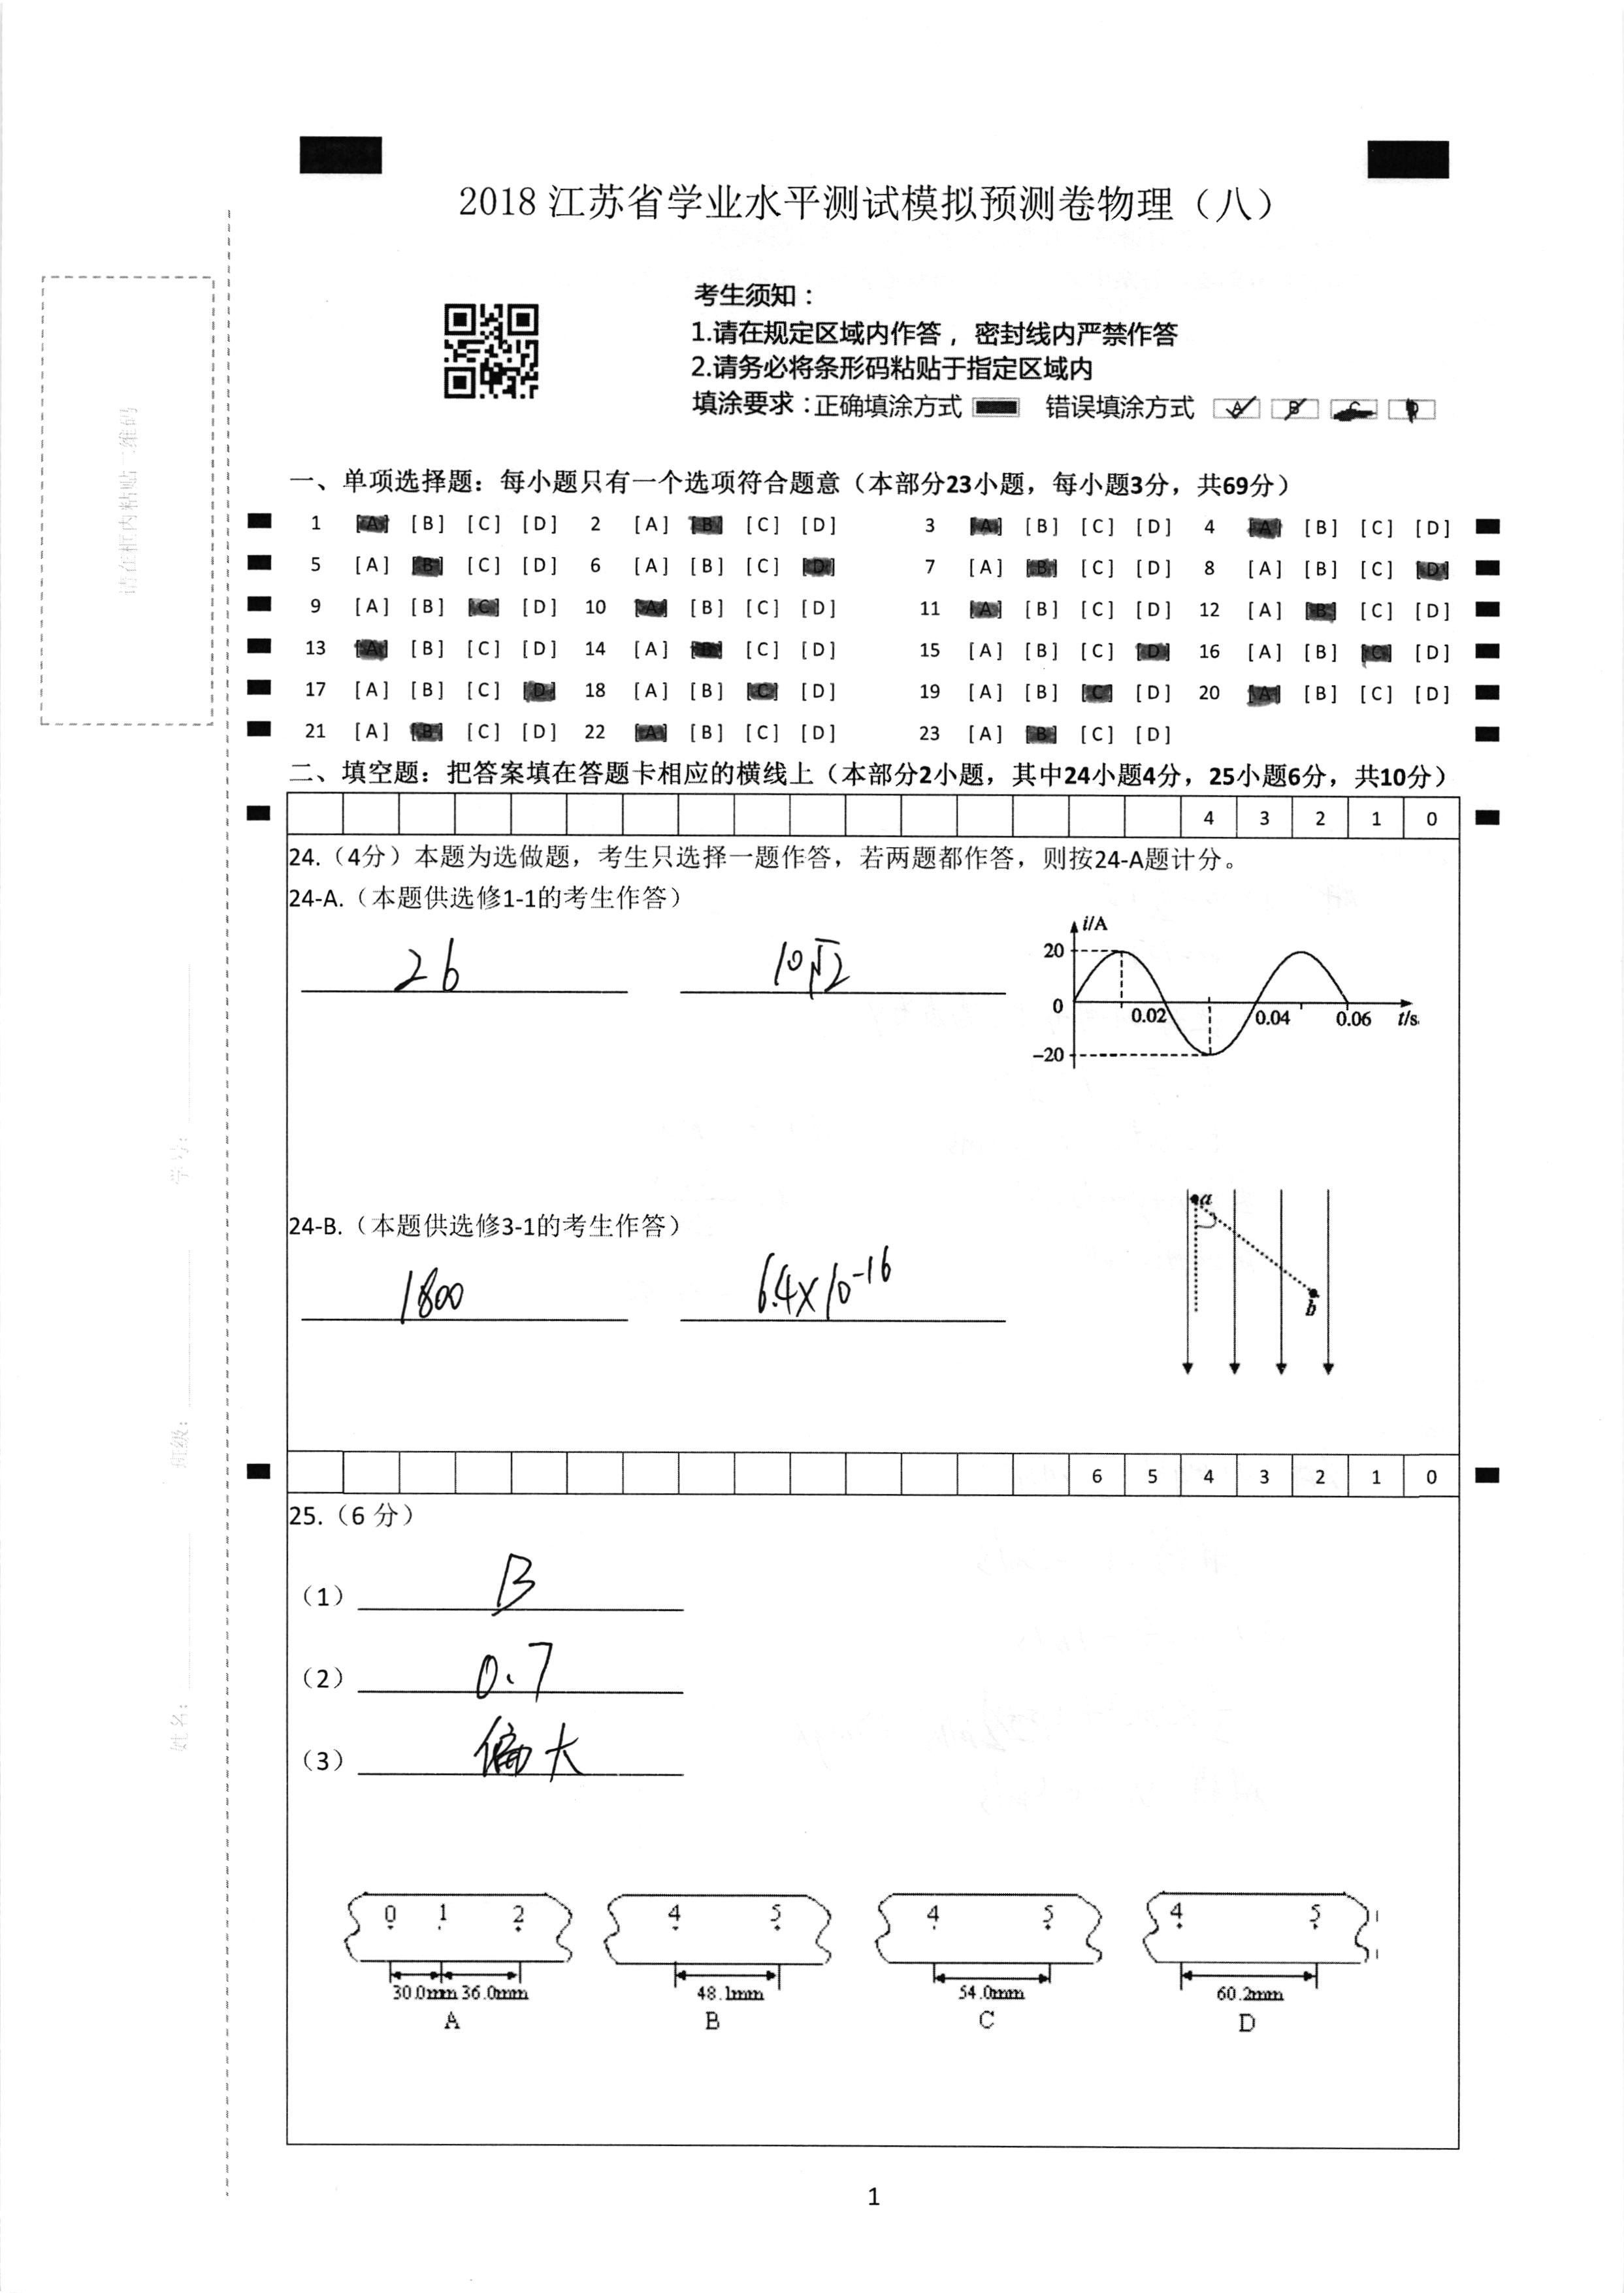 2018 江苏省学业水平测试模拟预测卷物理（八）
考生须知：
1.请在规定区域内作答，密封线内严禁作答
2.请务必将条形码粘贴于指定区域内
填涂要求：正确填涂方式 错误填涂方式 A B C D
请在框内粘贴二维码
学号：
班级：
姓名：
一、单项选择题：每小题只有一个选项符合题意（本部分23小题，每小题3分，共69分）
1 [A] [B] [C] [D] 2 [A] [B] [C] [D] 3 [A] [B] [C] [D] 4 [A] [B] [C] [D]
5 [A] [B] [C] [D] 6 [A] [B] [C] [D] 7 [A] [B] [C] [D] 8 [A] [B] [C] [D]
9 [A] [B] [C] [D] 10 [A] [B] [C] [D] 11 [A] [B] [C] [D] 12 [A] [B] [C] [D]
13 [A] [B] [C] [D] 14 [A] [B] [C] [D] 15 [A] [B] [C] [D] 16 [A] [B] [C] [D]
17 [A] [B] [C] [D] 18 [A] [B] [C] [D] 19 [A] [B] [C] [D] 20 [A] [B] [C] [D]
21 [A] [B] [C] [D] 22 [A] [B] [C] [D] 23 [A] [B] [C] [D]
二、填空题：把答案填在答题卡相应的横线上（本部分2小题，其中24小题4分，25小题6分，共10分）
4 3 2 1 0
24.（4分）本题为选做题，考生只选择一题作答，若两题都作答，则按24-A题计分。
24-A.（本题供选修1-1的考生作答）
26 10√2
i/A
20
0 0.02 0.04 0.06 t/s
-20
24-B.（本题供选修3-1的考生作答）
1800 6.4×10⁻¹⁶
a
b
6 5 4 3 2 1 0
25.（6 分）
（1） B
（2） 0.7
（3） 偏大
0 1 2 4 5 4 5 4 5
30.0mm 36.0mm 48.1mm 54.0mm 60.2mm
A B C D
1